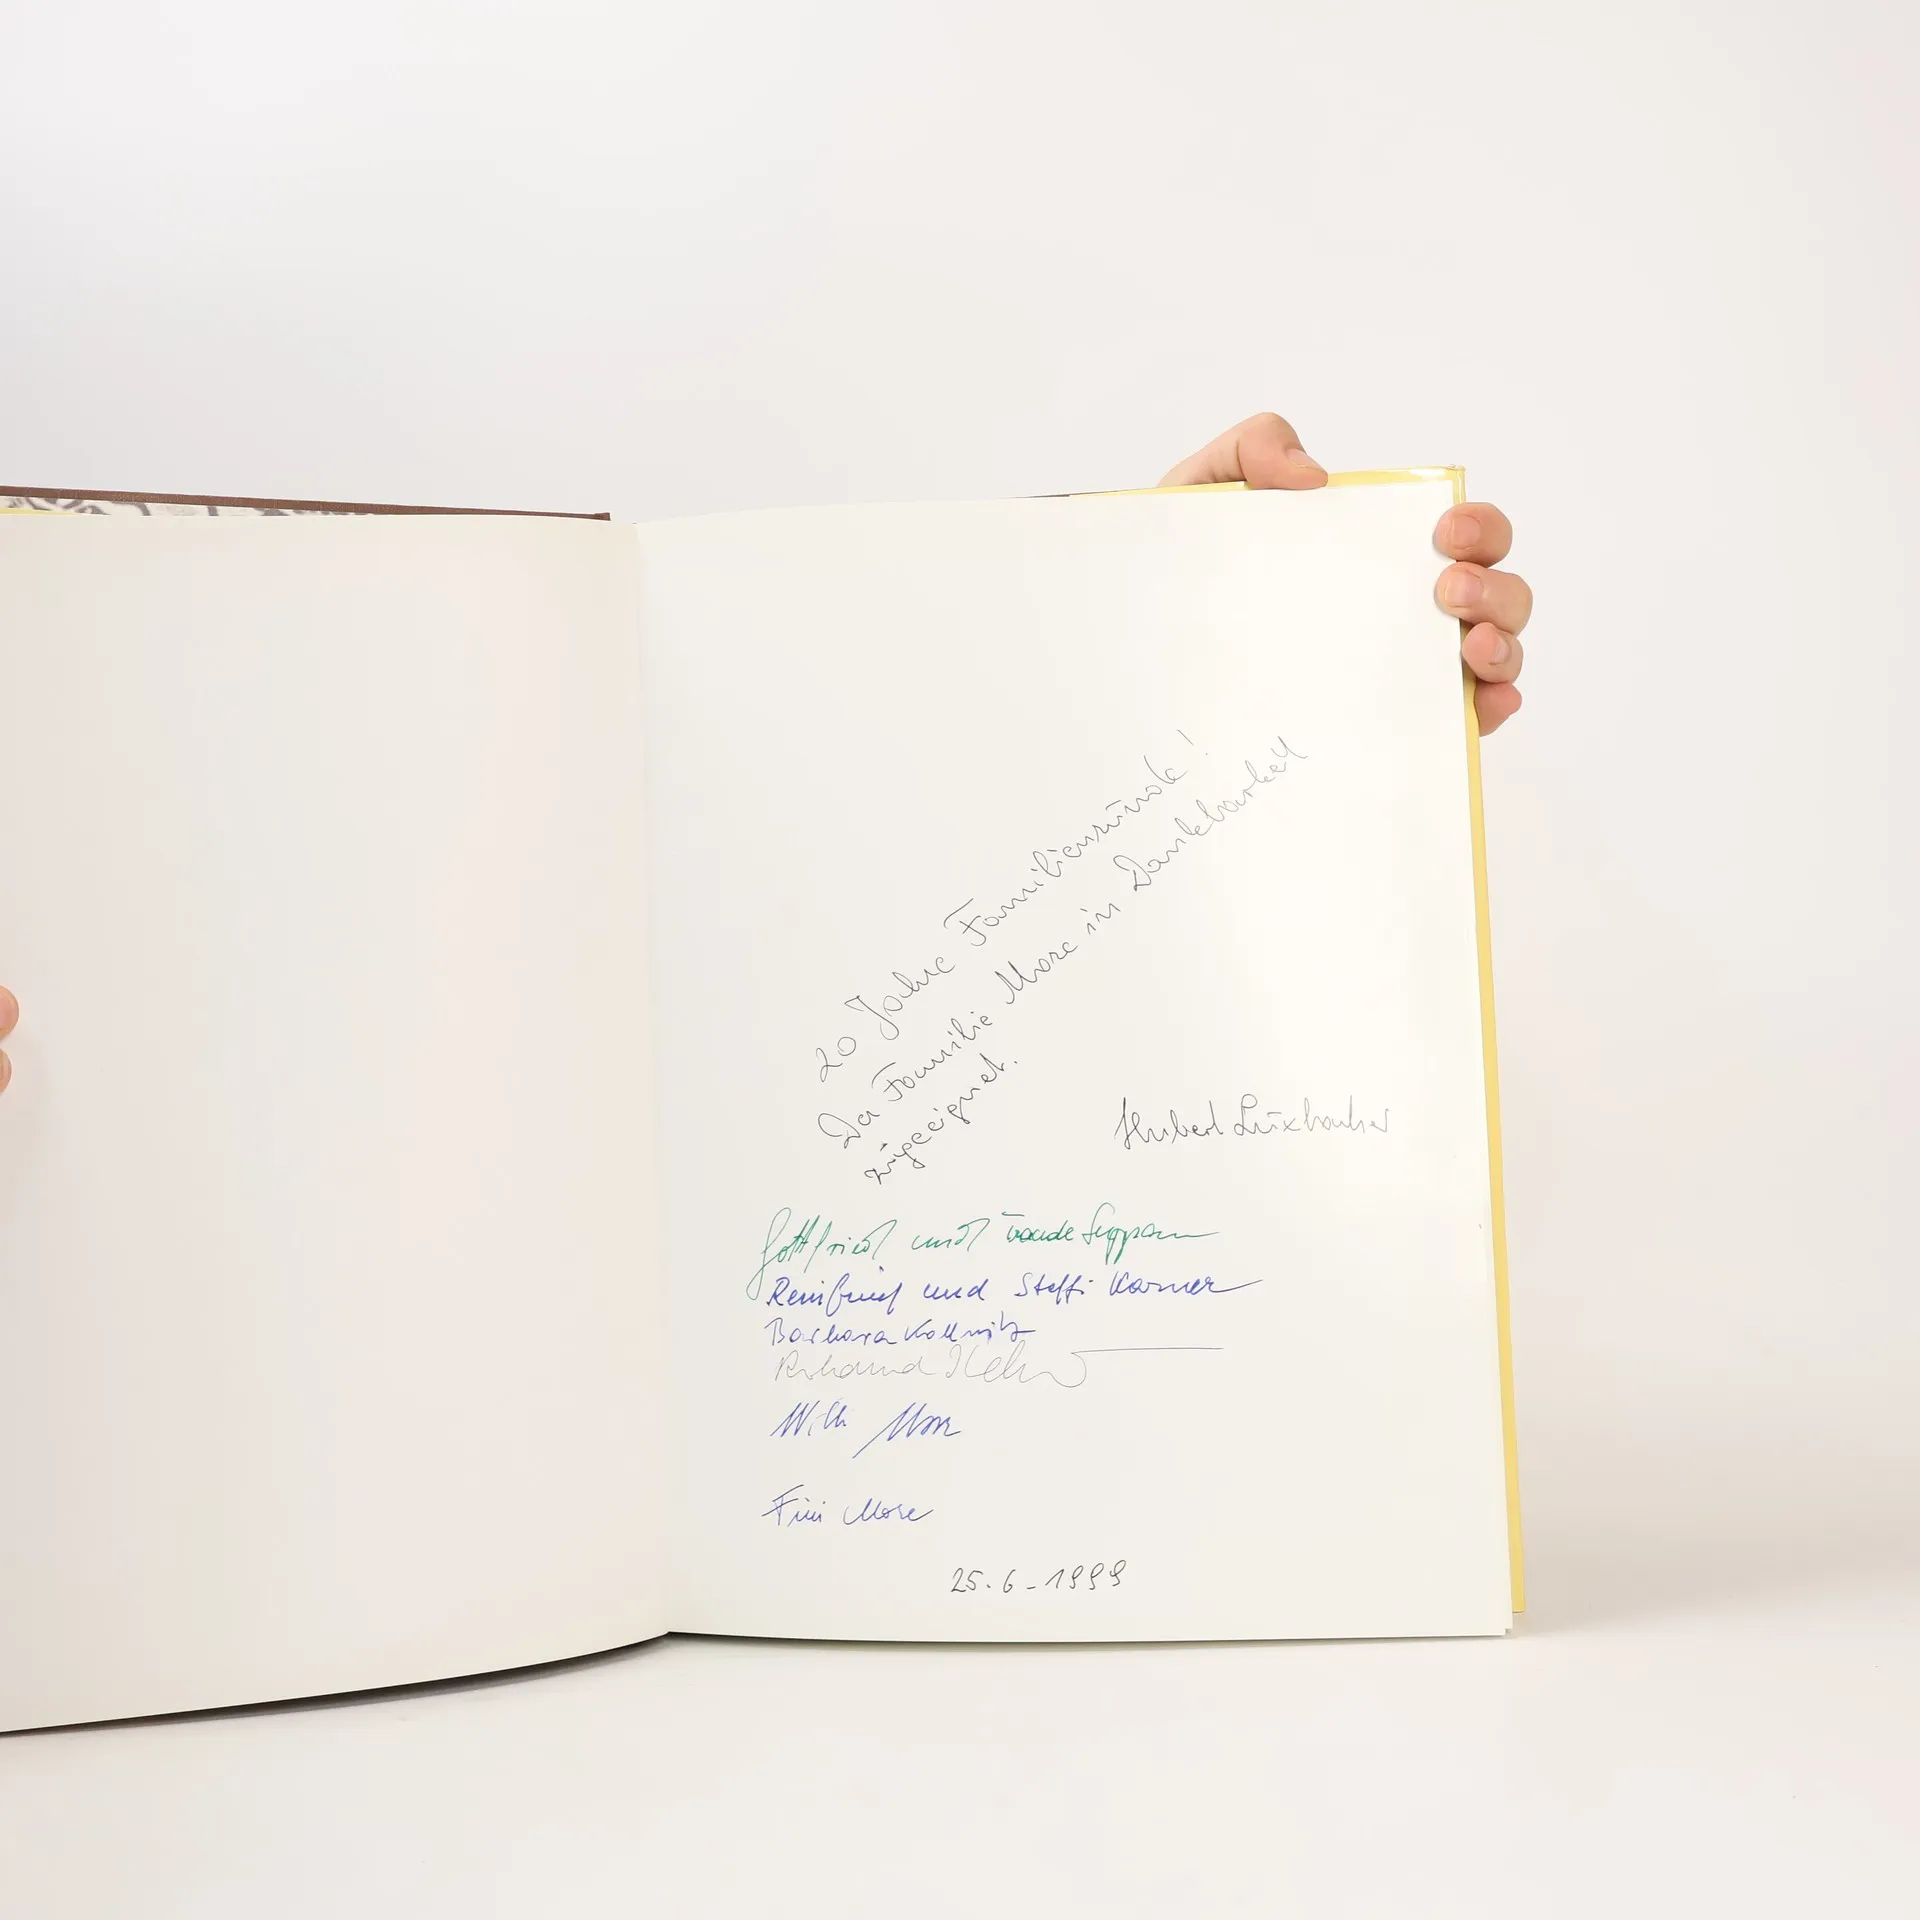 20 Jahre Familienrunde!
Der Familie More in Dankbarkeit
zugeeignet.
Hubert Luxbacher
Gottfried und Traude Suppan
Reinfried und Steffi Karner
Barbara Kollnitz
Willi More
Fini More
25.6-1999